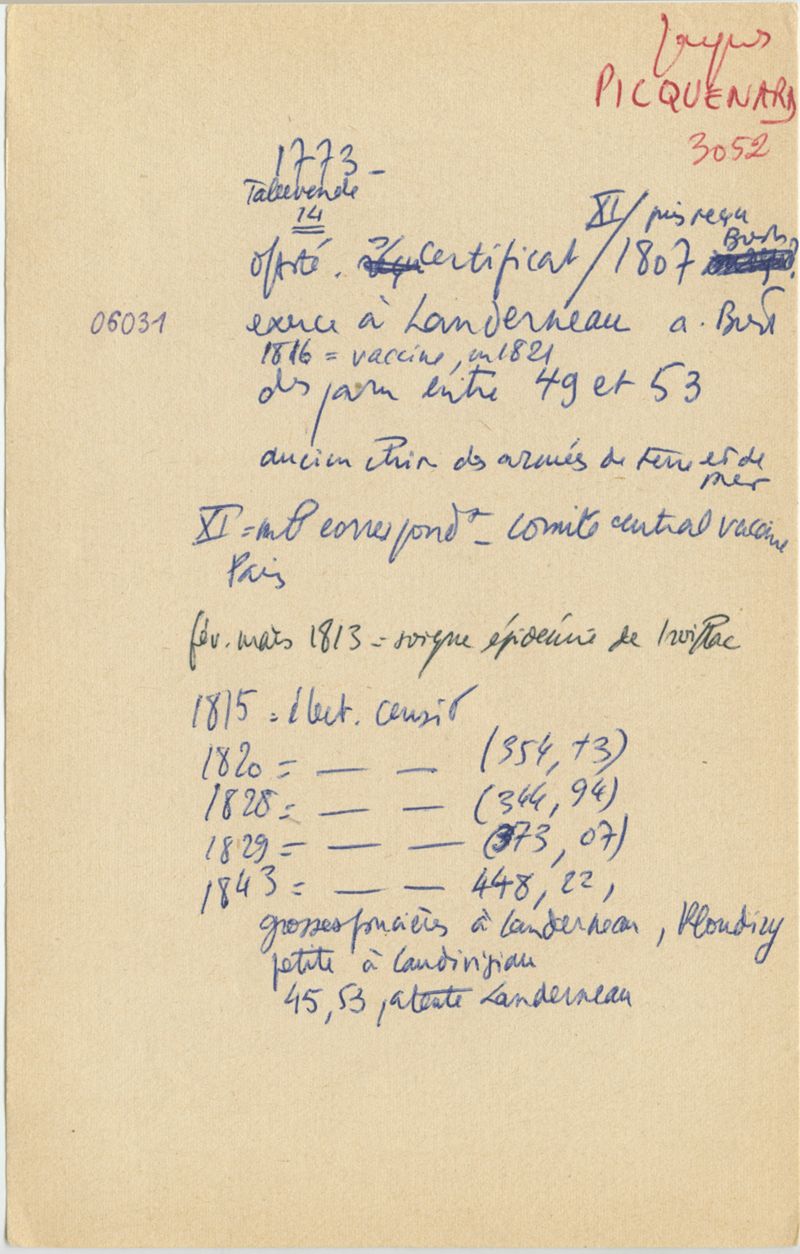 Jacques
PICQUENARD
3052
1773 -
Tallevende
14
XI / puis reçu
off. sté. certificat / 1807 Brest
06031
exerce à Landerneau a. Brest
1816 = vaccine, en 1821
disparu entre 49 et 53
ancien chir. des armées de terre et de
mer
XI = mb correspondt - comité central vaccine
Paris
fév. mars 1813 = soigne épidémie de Irvillac
1815 = élect. censit
1820 = — — (354, 73)
1828 = — — (344, 94)
1829 = — — (373, 07)
1843 = — — 448, 22,
grosses foncières à Landerneau, Ploudiry
petite à Landivisiau
45, 53, Landerneau